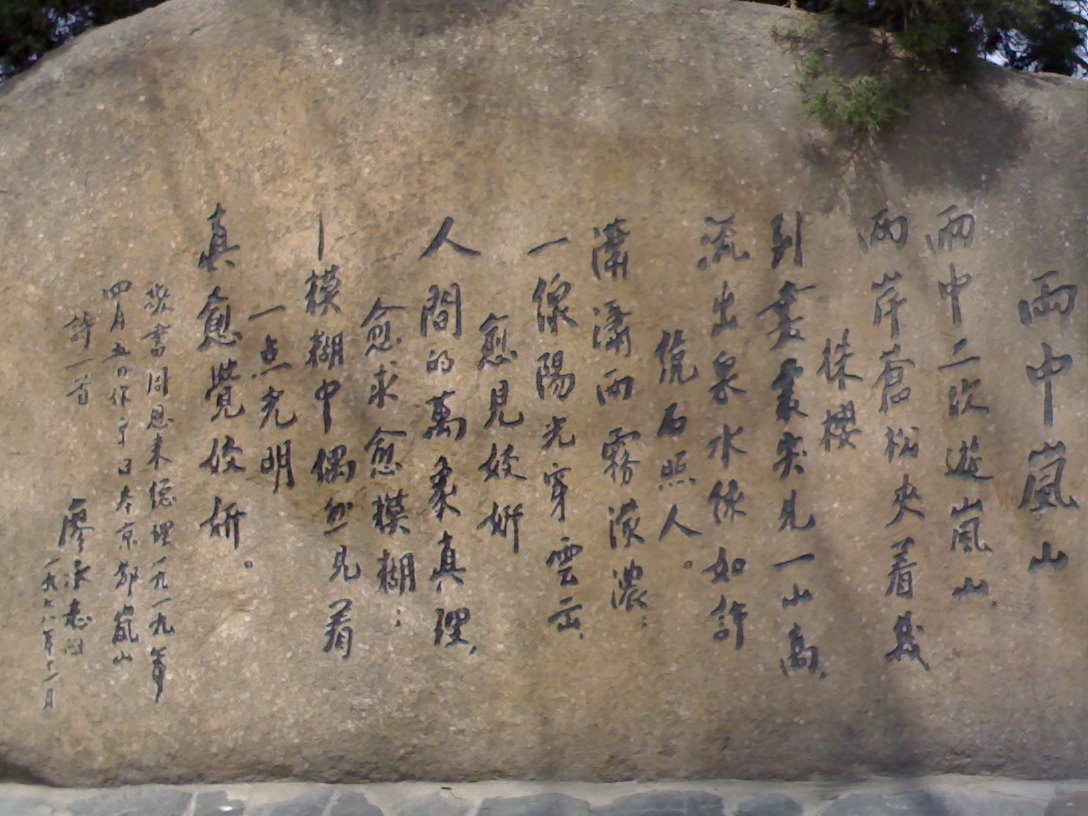 雨中嵐山
雨中二次遊嵐山,
兩岸蒼松夾着幾
株櫻
到盡處突見一山高,
流出泉水綠如許
繞石照人。
瀟瀟雨霧濛濃;
一線陽光穿雲出,
愈見姣妍
人間的萬象真理,
愈求愈模糊;
—模糊中偶然見着
一点光明
真愈覺姣妍。
敬書周恩来總理一九一九年
四月五日作于日本京都嵐山
詩一首
廖承志
一九七八年十一月